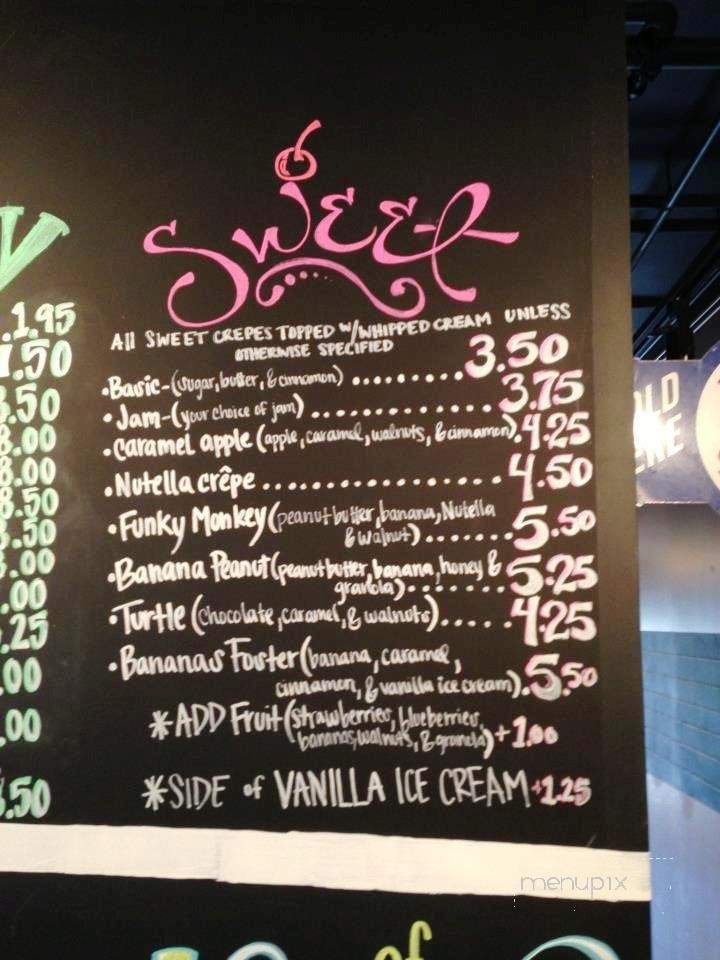 Y
.1.95
.50
.50
8.00
8.00
8.50
.50
.00
.00
.25
.00
.00
.50
Sweet
All SWEET CREPES TOPPED w/WHIPPED CREAM UNLESS
OTHERWISE SPECIFIED
•Basic-(sugar, butter, & cinnamon) .......... 3.50
•Jam-(your choice of jam) .............. 3.75
•Caramel apple (apple, caramel, walnuts, & cinnamon). 4.25
•Nutella crêpe .................... 4.50
•Funky Monkey (peanut butter, banana, Nutella
& walnut) ....... 5.50
•Banana Peanut (peanut butter, banana, honey &
granola) ........ 5.25
•Turtle (chocolate, caramel, & walnuts) ..... 4.25
•Bananas Foster (banana, caramel,
cinnamon, & vanilla ice cream). 5.50
*ADD Fruit (strawberries, blueberries,
bananas, walnuts, & granola) +1.00
*SIDE of VANILLA ICE CREAM +1.25
menupix
of